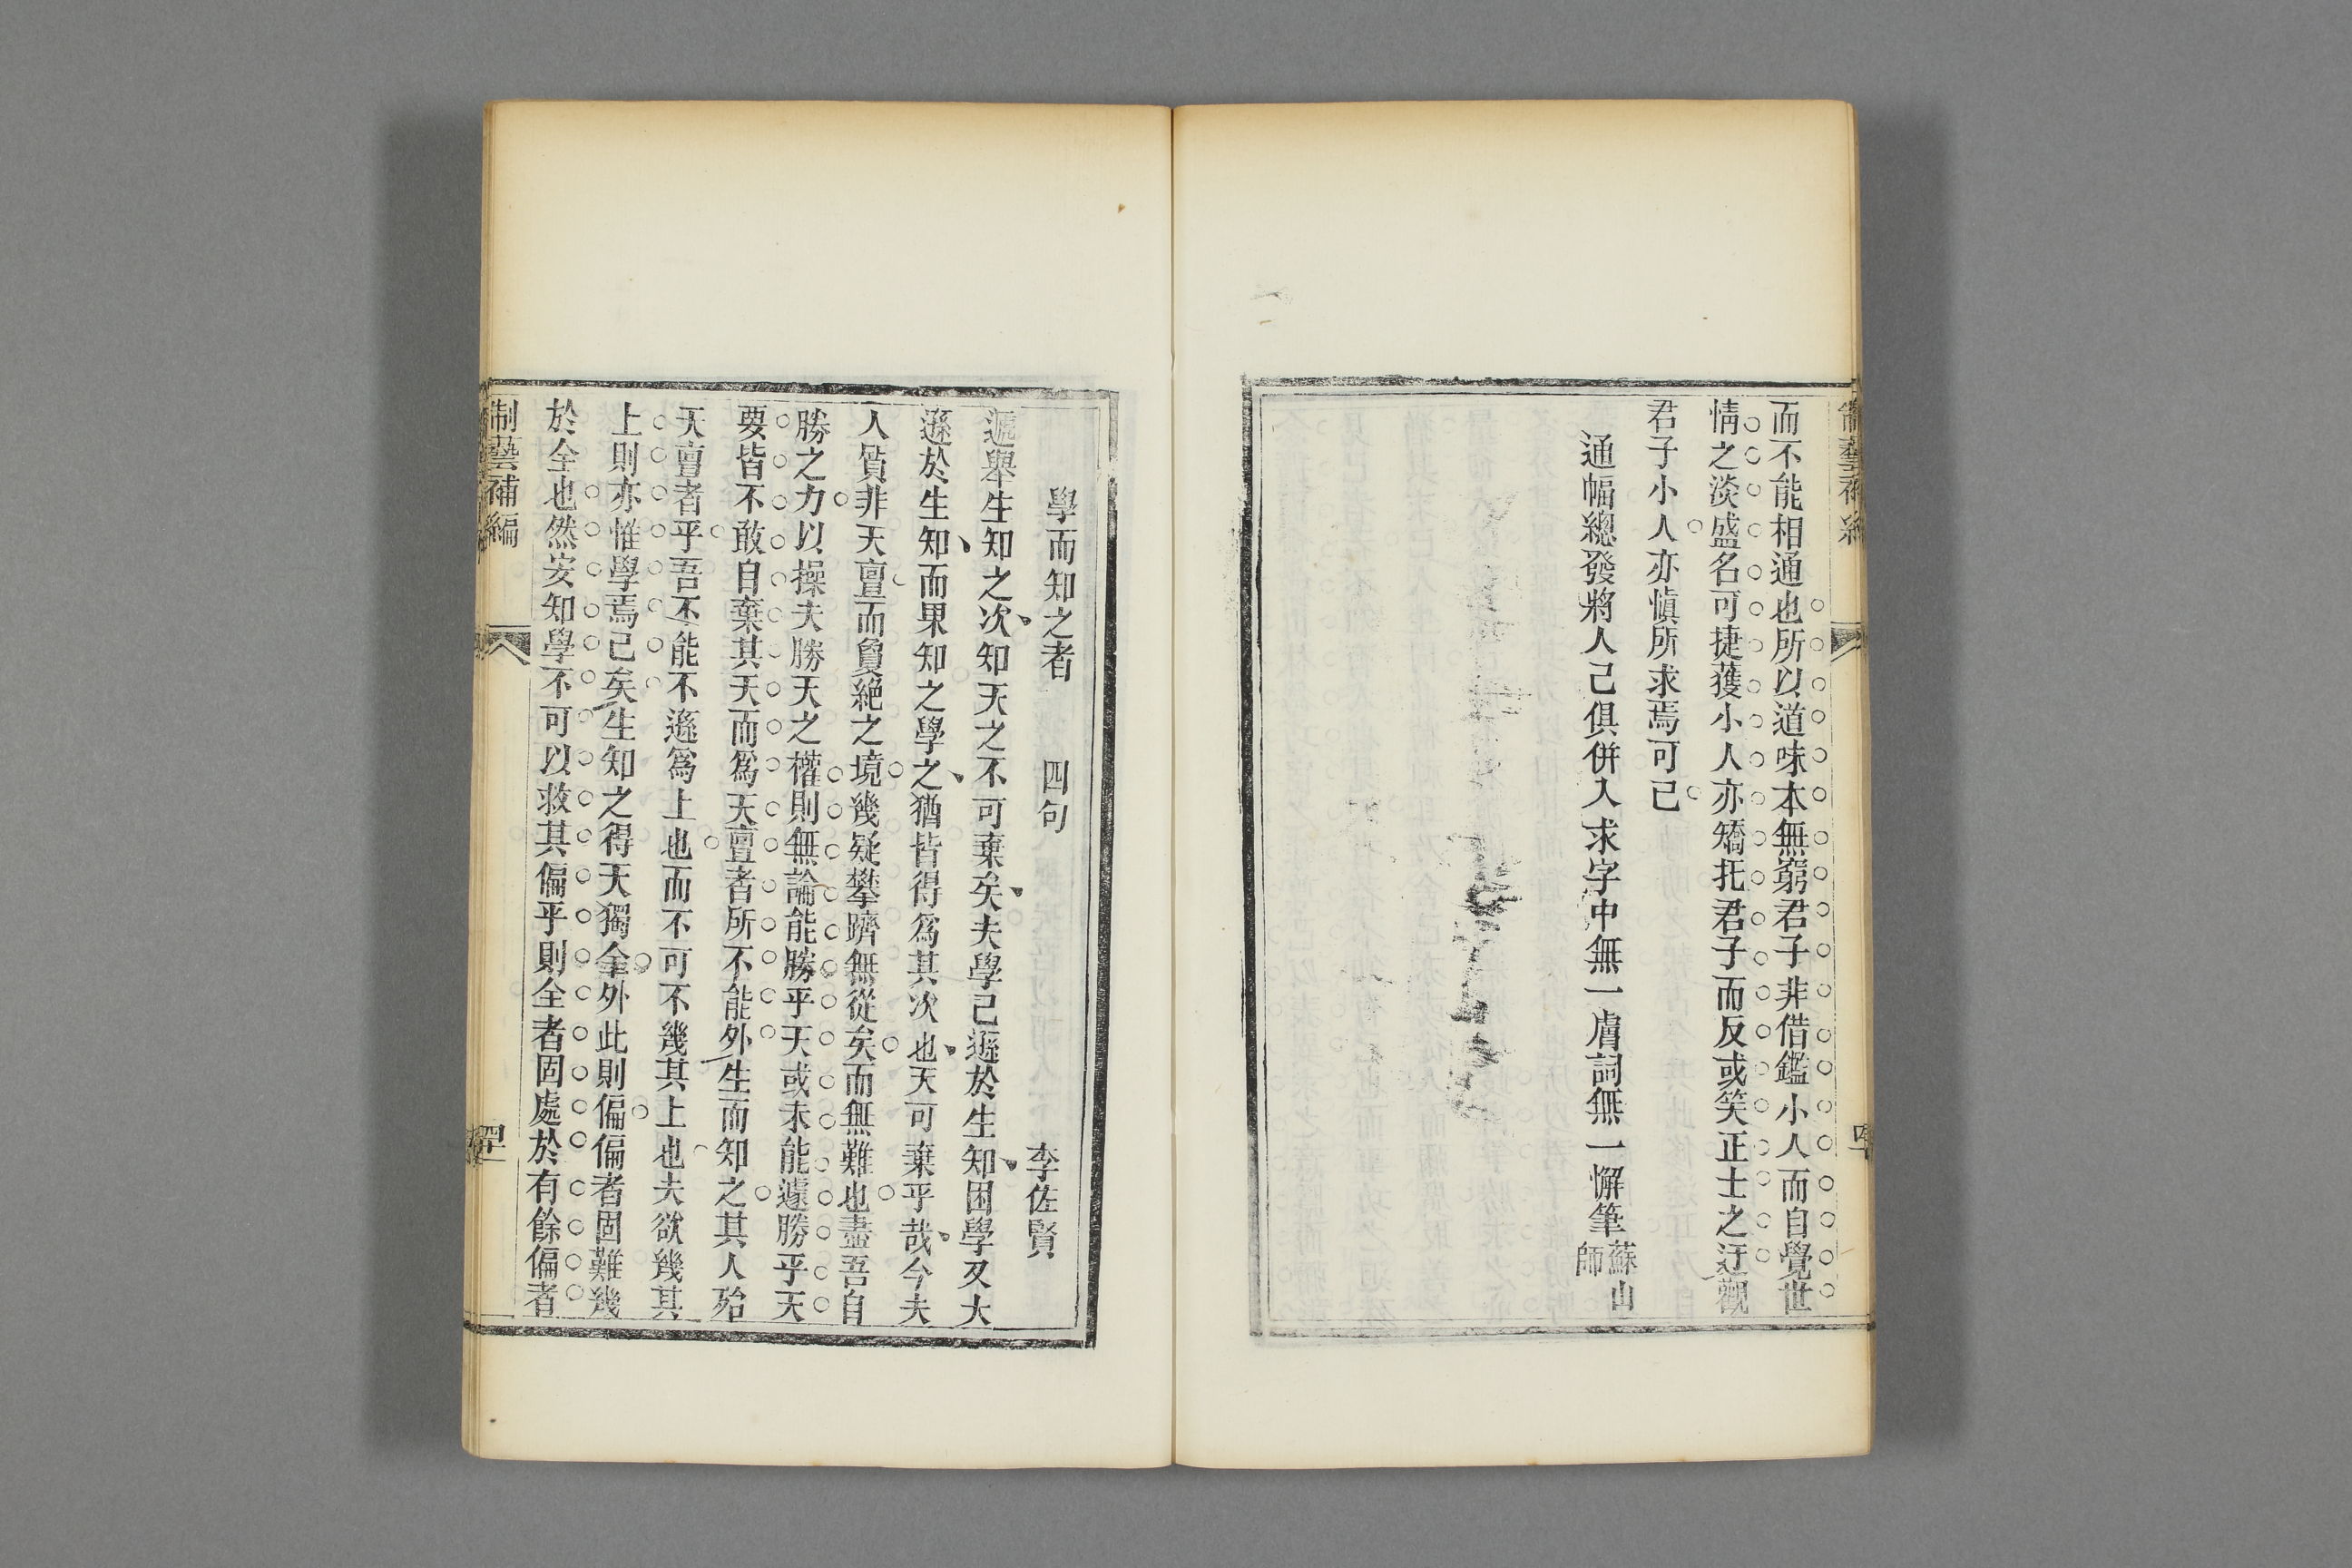 而不能相通也所以道味本無窮君子非借鑑小人而自覺世
情之淡盛名可捷獲小人亦矯托君子而反或笑正士之迂觀
君子小人亦愼所求焉可已
通幅總發將人己俱併入求字中無一膚詞無一懈筆蘇山師
學而知之者 四句 李佐賢
遞舉生知之次知天之不可棄矣夫學已遜於生知困學又大
遜於生知而果知之學之猶皆得爲其次也天可棄乎哉今夫
人質非天亶而負絕之境幾疑攀躋無從矣而無難也盡吾自
勝之力以操夫勝天之權則無論能勝乎天或未能遽勝乎天
要皆不敢自棄其天而爲天亶者所不能外生而知之其人殆
天亶者乎吾不能不遜爲上也而不可不幾其上也夫欲幾其
上則亦惟學焉已矣生知之得天獨全外此則偏偏者固難幾
於全也然安知學不可以救其偏乎則全者固處於有餘偏者
制藝補編